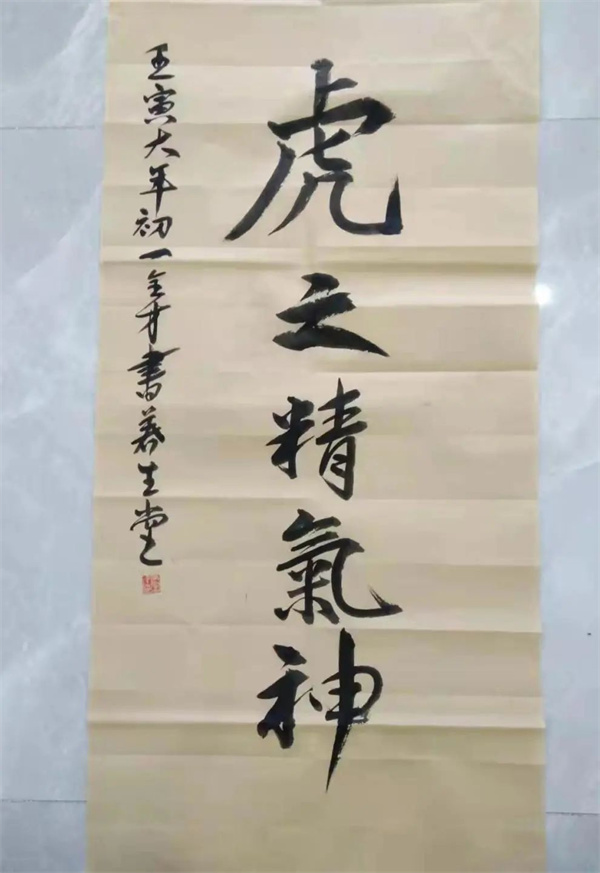 虎之精氣神
壬寅大年初一金才書養生堂